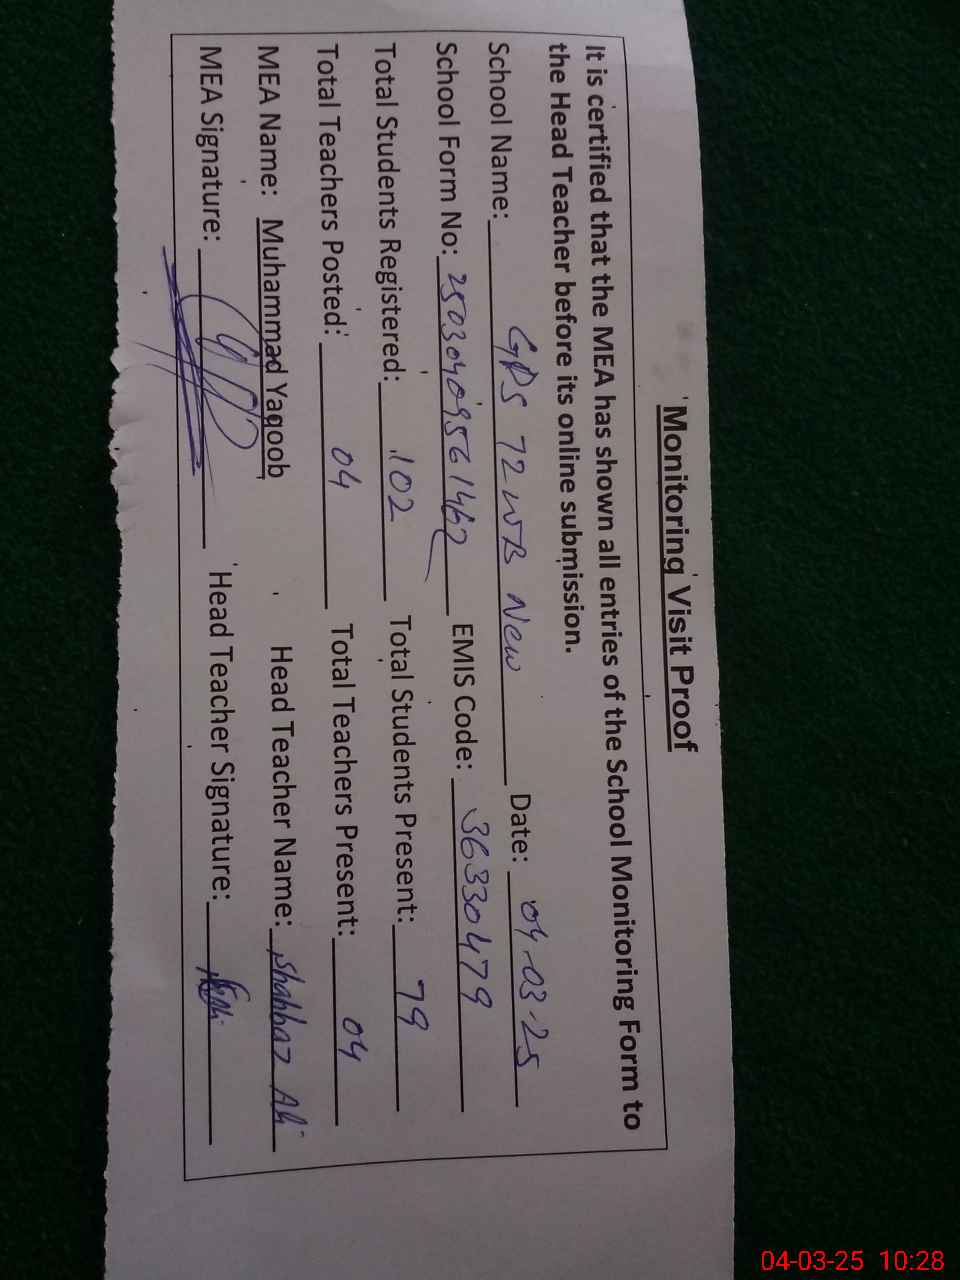 Monitoring Visit Proof
It is certified that the MEA has shown all entries of the School Monitoring Form to
the Head Teacher before its online submission.
School Name: GPS 72 WB New Date: 04-03-25
School Form No: 25030409561462 EMIS Code: 36330479
Total Students Registered: 102 Total Students Present: 79
Total Teachers Posted: 04 Total Teachers Present: 04
MEA Name: Muhammad Yaqoob Head Teacher Name: Shahbaz Ali
MEA Signature: Head Teacher Signature:
04-03-25 10:28